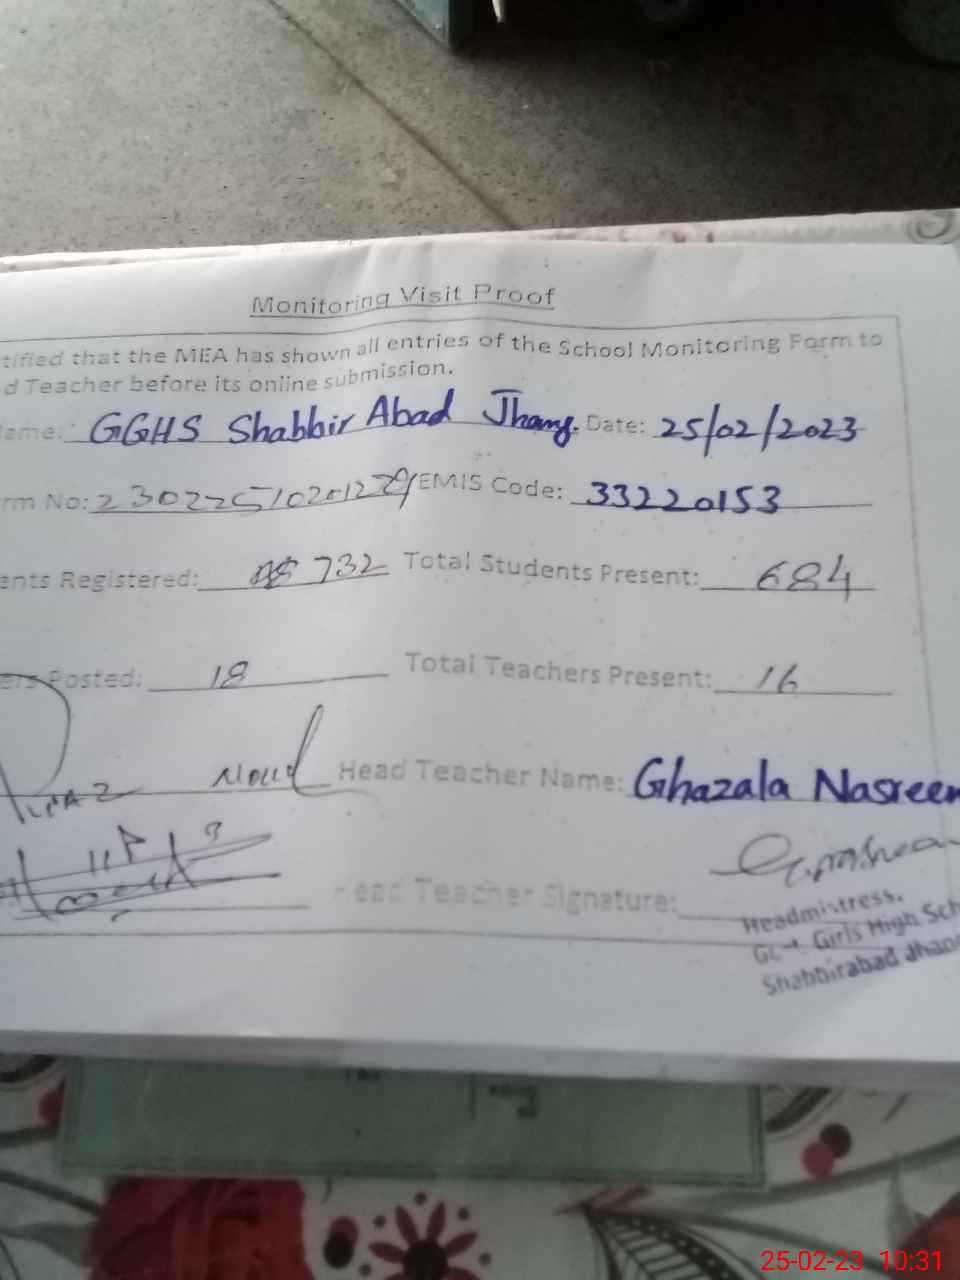 Monitoring Visit Proof
tified that the MEA has shown all entries of the School Monitoring Form to
d Teacher before its online submission.
ame: GGHS Shabbir Abad Jhang. Date: 25/02/2023
rm No: EMIS Code: 33220153
ents Registered: 732 Total Students Present: 684
ers Posted: 18 Total Teachers Present: 16
Head Teacher Name: Ghazala Nasreen
Head Teacher Signature:
Headmistress.
Girls High Sch
Shabbirabad Jhan
25-02-23 10:31